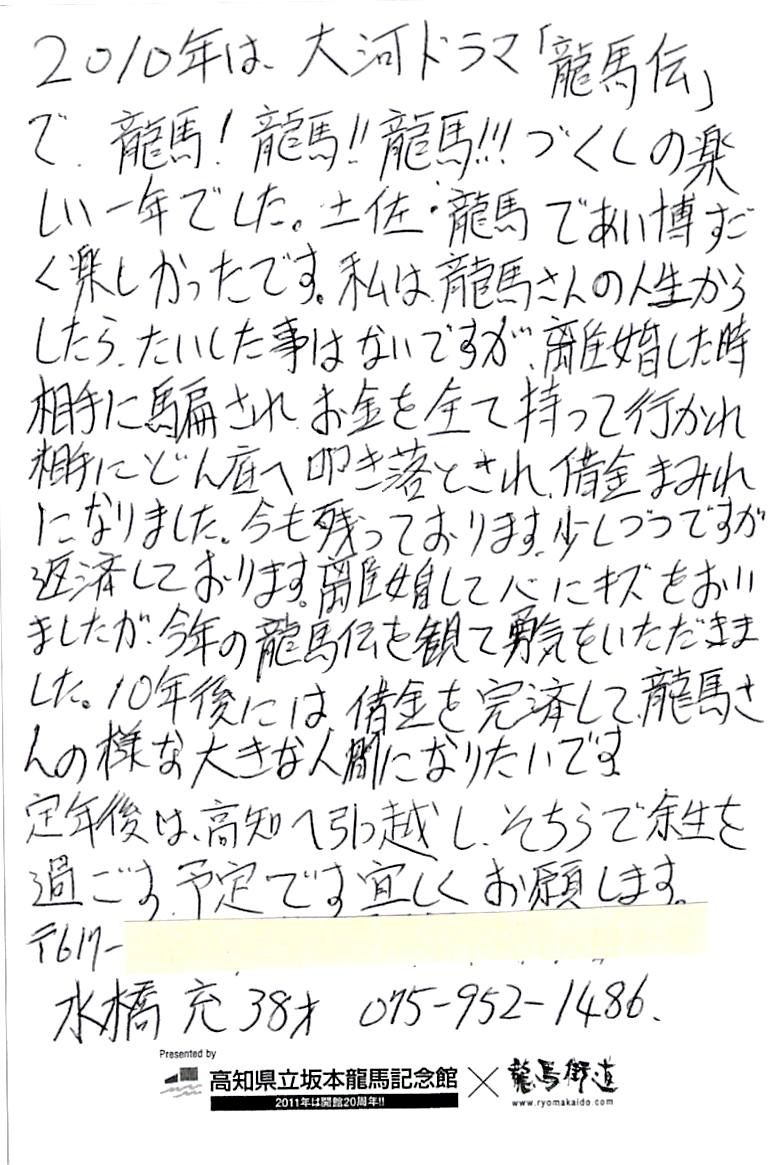 2010年は、大河ドラマ「龍馬伝」
で、龍馬!龍馬!!龍馬!!!づくしの楽
しい一年でした。土佐・龍馬であい博すご
く楽しかったです。私は、龍馬さんの人生から
したら、たいした事はないですが、離婚した時
相手に騙され、お金を全て持って行かれ
相手にどん底へ叩き落とされ、借金まみれ
になりました。今も残っております。少しづつですが
返済しております。離婚して心にキズをおい
ましたが、今年の龍馬伝を観て勇気をいただきま
した。10年後には、借金を完済して、龍馬さ
んの様な大きな人間になりたいです。
定年後は、高知へ引っ越し、そちらで余生を
過ごす、予定です宜しくお願します。
〒617-
水橋 充 38才 075-952-1486.
Presented by
高知県立坂本龍馬記念館 × 龍馬街道
2011年は開館20周年!! www.ryomakaido.com